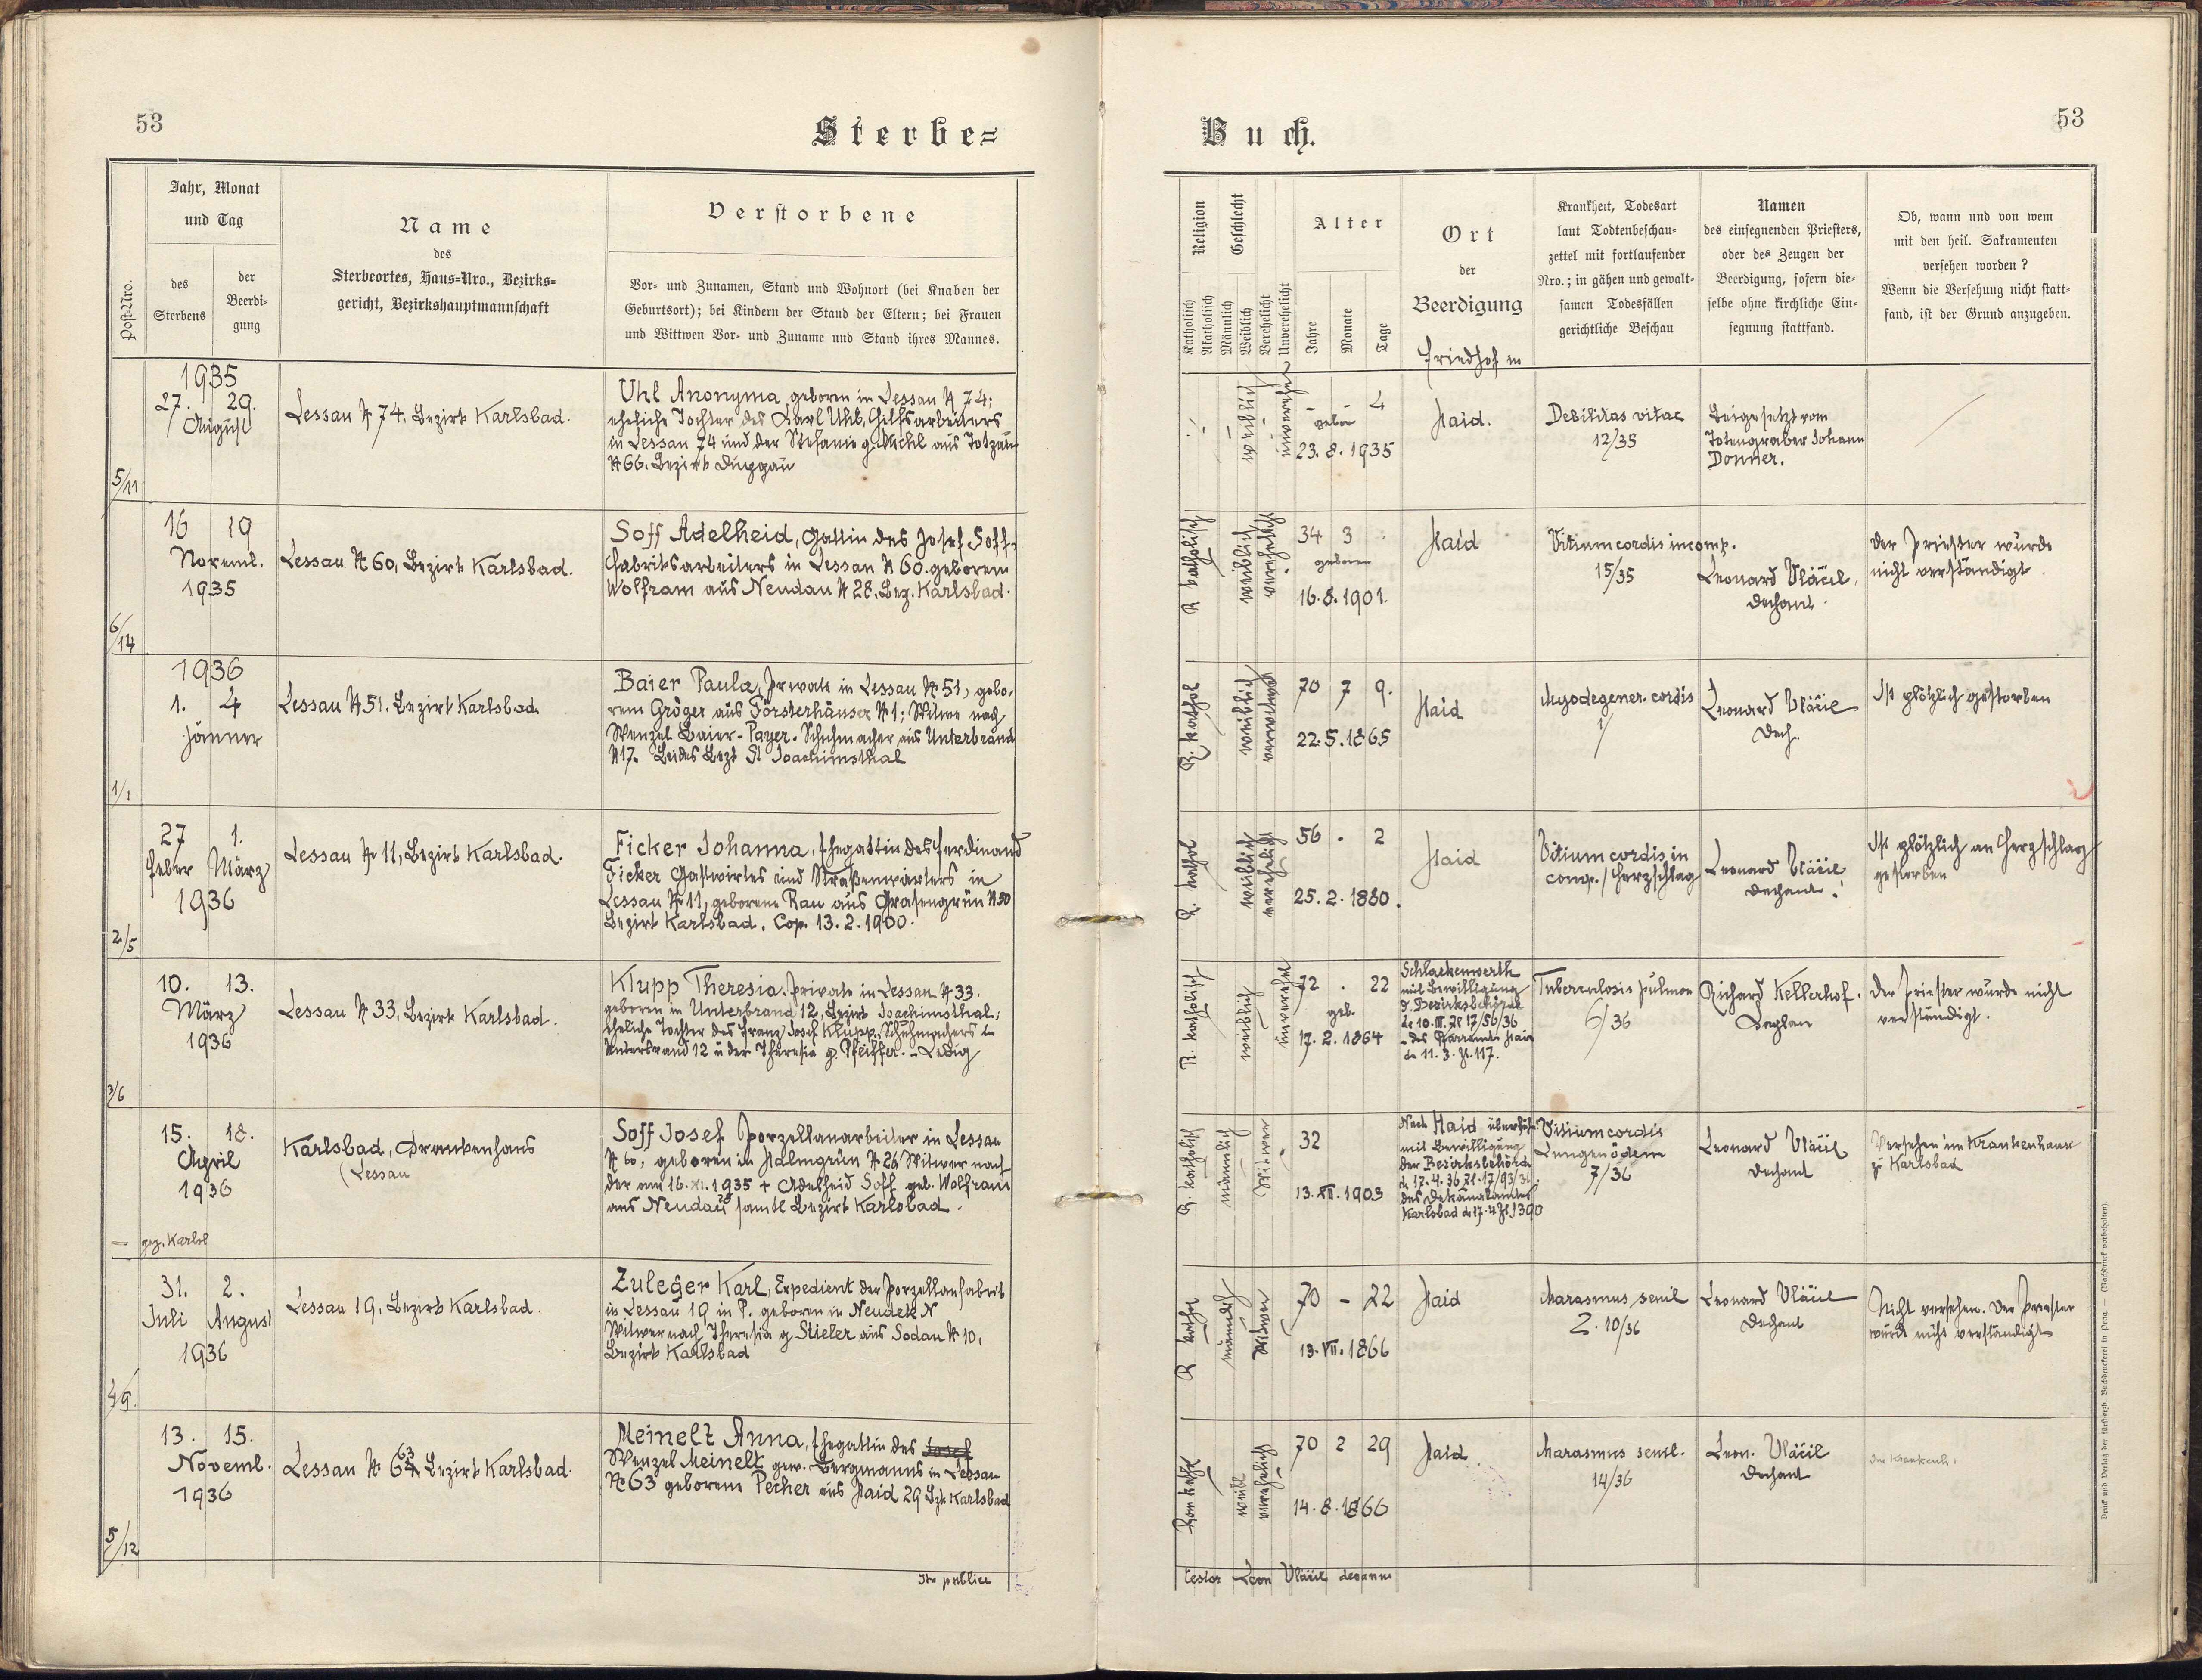 53
Sterbe=
Jahr, Monat
und Tag
Post-Nro.
des
Sterbens
der
Beerdi=
gung
Name
des
Sterbeortes, Haus=Nro., Bezirks=
gericht, Bezirkshauptmannschaft
Verstorbene
Vor= und Zunamen, Stand und Wohnort (bei Knaben der
Geburtsort); bei Kindern der Stand der Eltern; bei Frauen
und Wittwen Vor= und Zuname und Stand ihres Mannes.
1935
27. 29.
August
5/11
Lessau N 74, Bezirk Karlsbad.
Uhl Anonyma, geboren in Lessau N 74;
eheliche Tochter des Karl Uhl, Hilfsarbeiters
in Lessau 74 und der Stefanie g. Michl aus Totzau
N 66. Bezirk Duppau
16 19
Noveml.
1935
6/14
Lessau N 60, Bezirk Karlsbad.
Soff Adelheid, Gattin des Josef Soff-
Fabriksarbeiters in Lessau N 60. geboren
Wolfram aus Neudau N 28, Bez. Karlsbad.
1936
1. 4
Jänner
1/1
Lessau N 51. Bezirk Karlsbad.
Baier Paula, Private in Lessau N 51, gebo-
rene Gröger aus Försterhäuser N 1; Witwe nach
Wenzel Baier-Payer. Schuhmacher aus Unterbrand
N 17. Beides Bezk St Joachimsthal
27 1.
Feber März
1936
2/5
Lessau N 11, Bezirk Karlsbad.
Ficker Johanna, Ehegattin des Ferdinand
Ficker Gastwirtes und Straßenwärters in
Lessau N 11, geborene Rau aus Grasengrün N 20
Bezirk Karlsbad. Cop. 13.2.1900.
10. 13.
März
1936
3/6
Lessau N 33, Bezirk Karlsbad.
Klupp Theresia. Private in Lessau N 33.
geboren in Unterbrand 12, Bezirk Joachimsthal;
eheliche Tochter des Franz Josef Klupp, Schuhmachers in
Unterbrand 12 u der Theresia g. Pfeiffer. - Ledig
15. 18.
April
1936
gez. Karlsb
Karlsbad, Krankenhaus
(Lessau
Soff Josef Porzellanarbeiter in Lessau
N 60, geboren in Halmgrün N 26 Witwer nach
der am 16.XI.1935 + Adelheid Soff geb. Wolfram
aus Neudau 28 samtl Bezirk Karlsbad.
31. 2.
Juli August
1936
4/9.
Lessau 19, Bezirk Karlsbad.
Zuleger Karl, Expedient der Porzellanfabrik
in Lessau 19 in P. geboren in Neudek N
Witwer nach Theresia g Stieler aus Sodau N 10,
Bezirk Karlsbad
13. 15.
Noveml.
1936
5/12
Lessau N 63 Bezirk Karlsbad.
Meinelt Anna, Ehegattin des Josef
Wenzel Meinelt gew. Bergmanns in Lessau
N 63 geborene Pecher aus Haid 29 Bzk Karlsbad
Ita publice
53
Buch.
Religion
Geschlecht
Katholisch
Akatholisch
Männlich
Weiblich
Verehelicht
Unverehelicht
Alter
Jahre
Monate
Tage
Ort
der
Beerdigung
Friedhof in
Krankheit, Todesart
laut Todtenbeschau=
zettel mit fortlaufender
Nro.; in gähen und gewalt=
samen Todesfällen
gerichtliche Beschau
Namen
des einsegnenden Priesters,
oder des Zeugen der
Beerdigung, sofern die=
selbe ohne kirchliche Ein=
segnung stattfand.
Ob, wann und von wem
mit den heil. Sakramenten
versehen worden?
Wenn die Versehung nicht statt=
fand, ist der Grund anzugeben.
weiblich
unverehel
- - 4
geboren
23.8.1935
Haid.
Debilitas vitae
12/35
Beigesetzt vom
Totengräber Johann
Donner.
R katholisch
weiblich
verehelicht
34 3
geboren
16.8.1901.
Haid
Vitium cordis incomp.
15/35
Leonard Vláčil,
Dechant.
Der Priester wurde
nicht verständigt
R. kathol
weiblich
verwitwet
70 7 9.
22.5.1865
Haid
Myodegener. cordis
1/
Leonard Vláčil
Dech.
Ist plötzlich gestorben
R. kathol
weiblich
verehelicht
56 - 2
25.2.1880.
Haid
Vitium cordis in
comp./Herzschlag
Leonard Vláčil
Dechant.
Ist plötzlich an Herzschlag
gestorben
R. katholisch
weiblich
unverehel
72 . 22
geb.
17.2.1864
Schlackenwerth
mit Bewilligung
d. Bezirksbehörde
de 10.III. Zl 17/56/36
- des Pfarramts Haid
de 11.3. Zl. 117.
Tuberculosis pulmon
6/36
Richard Kellerhof.
Kaplan
Der Priester wurde nicht
verständigt.
R. katholisch
männlich
Witwer
32
13.XII.1903
Nach Haid überführt
mit Bewilligung
der Bezirksbehörde
d. 17.4.36 Zl. 17/93/36,
des Dekanalamtes
Karlsbad de 17.4 Zl. 1390
Vitium cordis
Lungenödem
7/36
Leonard Vláčil
Dechant
Versehen im Krankenhause
zu Karlsbad
R kathol
männlich
Witwer
70 - 22
13.VII.1866
Haid
Marasmus senil
Z. 10/36
Leonard Vláčil
Dechant
Nicht versehen. Der Priester
wurde nicht verständigt
Rom kathl
weibl
verehelicht
70 2 29
14.8.1866
Haid
Marasmus senil.
14/36
Leon. Vláčil
Dechant
Im Krankenh.
testor Leon Vláčil decanus
Druck und Verlag der fürsterzb. Buchdruckerei in Prag. — (Nachdruck vorbehalten).